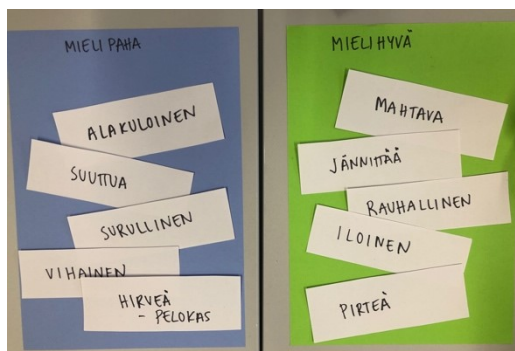 MIELI PAHA
ALAKULOINEN
SUUTTUA
SURULLINEN
VIHAINEN
HIRVEÄ
- PELOKAS
MIELI HYVÄ
MAHTAVA
JÄNNITTÄÄ
RAUHALLINEN
ILOINEN
PIRTEÄ